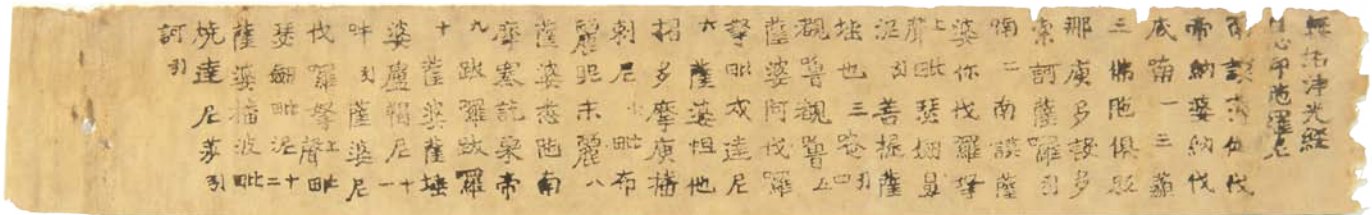 無垢浄光經
自心印陀羅尼
南謨薄伽伐
帝納婆納伐
底喃一三藐
三佛陀俱胝
那庾多設多
索訶薩囉引
喃二南謨薩
婆你伐羅拏
上聲毗瑟姍鼻
泥引菩提薩
埵也三唵引四
覩嚕覩嚕五
薩婆阿伐羅
拏毗戍達尼
六薩婆怛他
揭多摩庾播
剌尼七毗布
麗昵末麗八
薩婆悉陀南
摩塞訖栗帝
九跋羅跋羅
十薩婆薩埵
婆盧羯尼十一
吽引薩婆尼
伐羅拏上聲毗
瑟劒毗泥十二
薩婆播波毗
燒達尼莎引
訶引